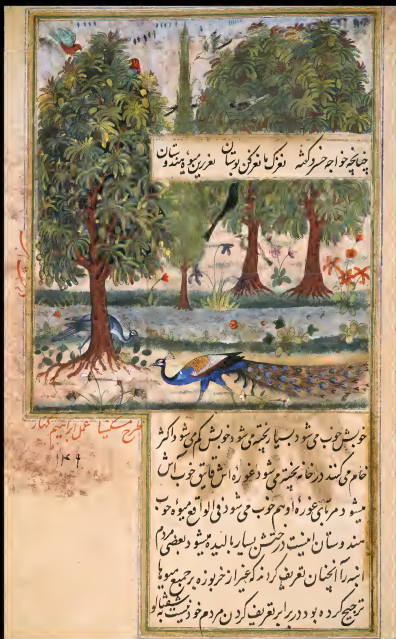 چنانچه خواجه خسرو گفته نغزک ما نغز کن بوستان نغزترین میوهٔ هندوستان
خوبش خوب می‌شود بسیار پخته می‌شود خوبش کم می‌شود اکثر
خام می‌کنند در خانه پخته می‌شود غوره‌اش قاتق خوب آش
میشود مربای غورهٔ او هم خوب می‌شود فی الواقع میوهٔ خوب
هندوستان اینست درختش بسیار بالیده میشود بعضی مردم
انبه را آنچنان تعریف کردند که غیر از خربوزه بر جمیع میوها
ترجیح کرده بودند در برابر تعریف کردن مردم خود نیست به شفتالو
طرح عمل ابراهیم کهار
۱۴۹